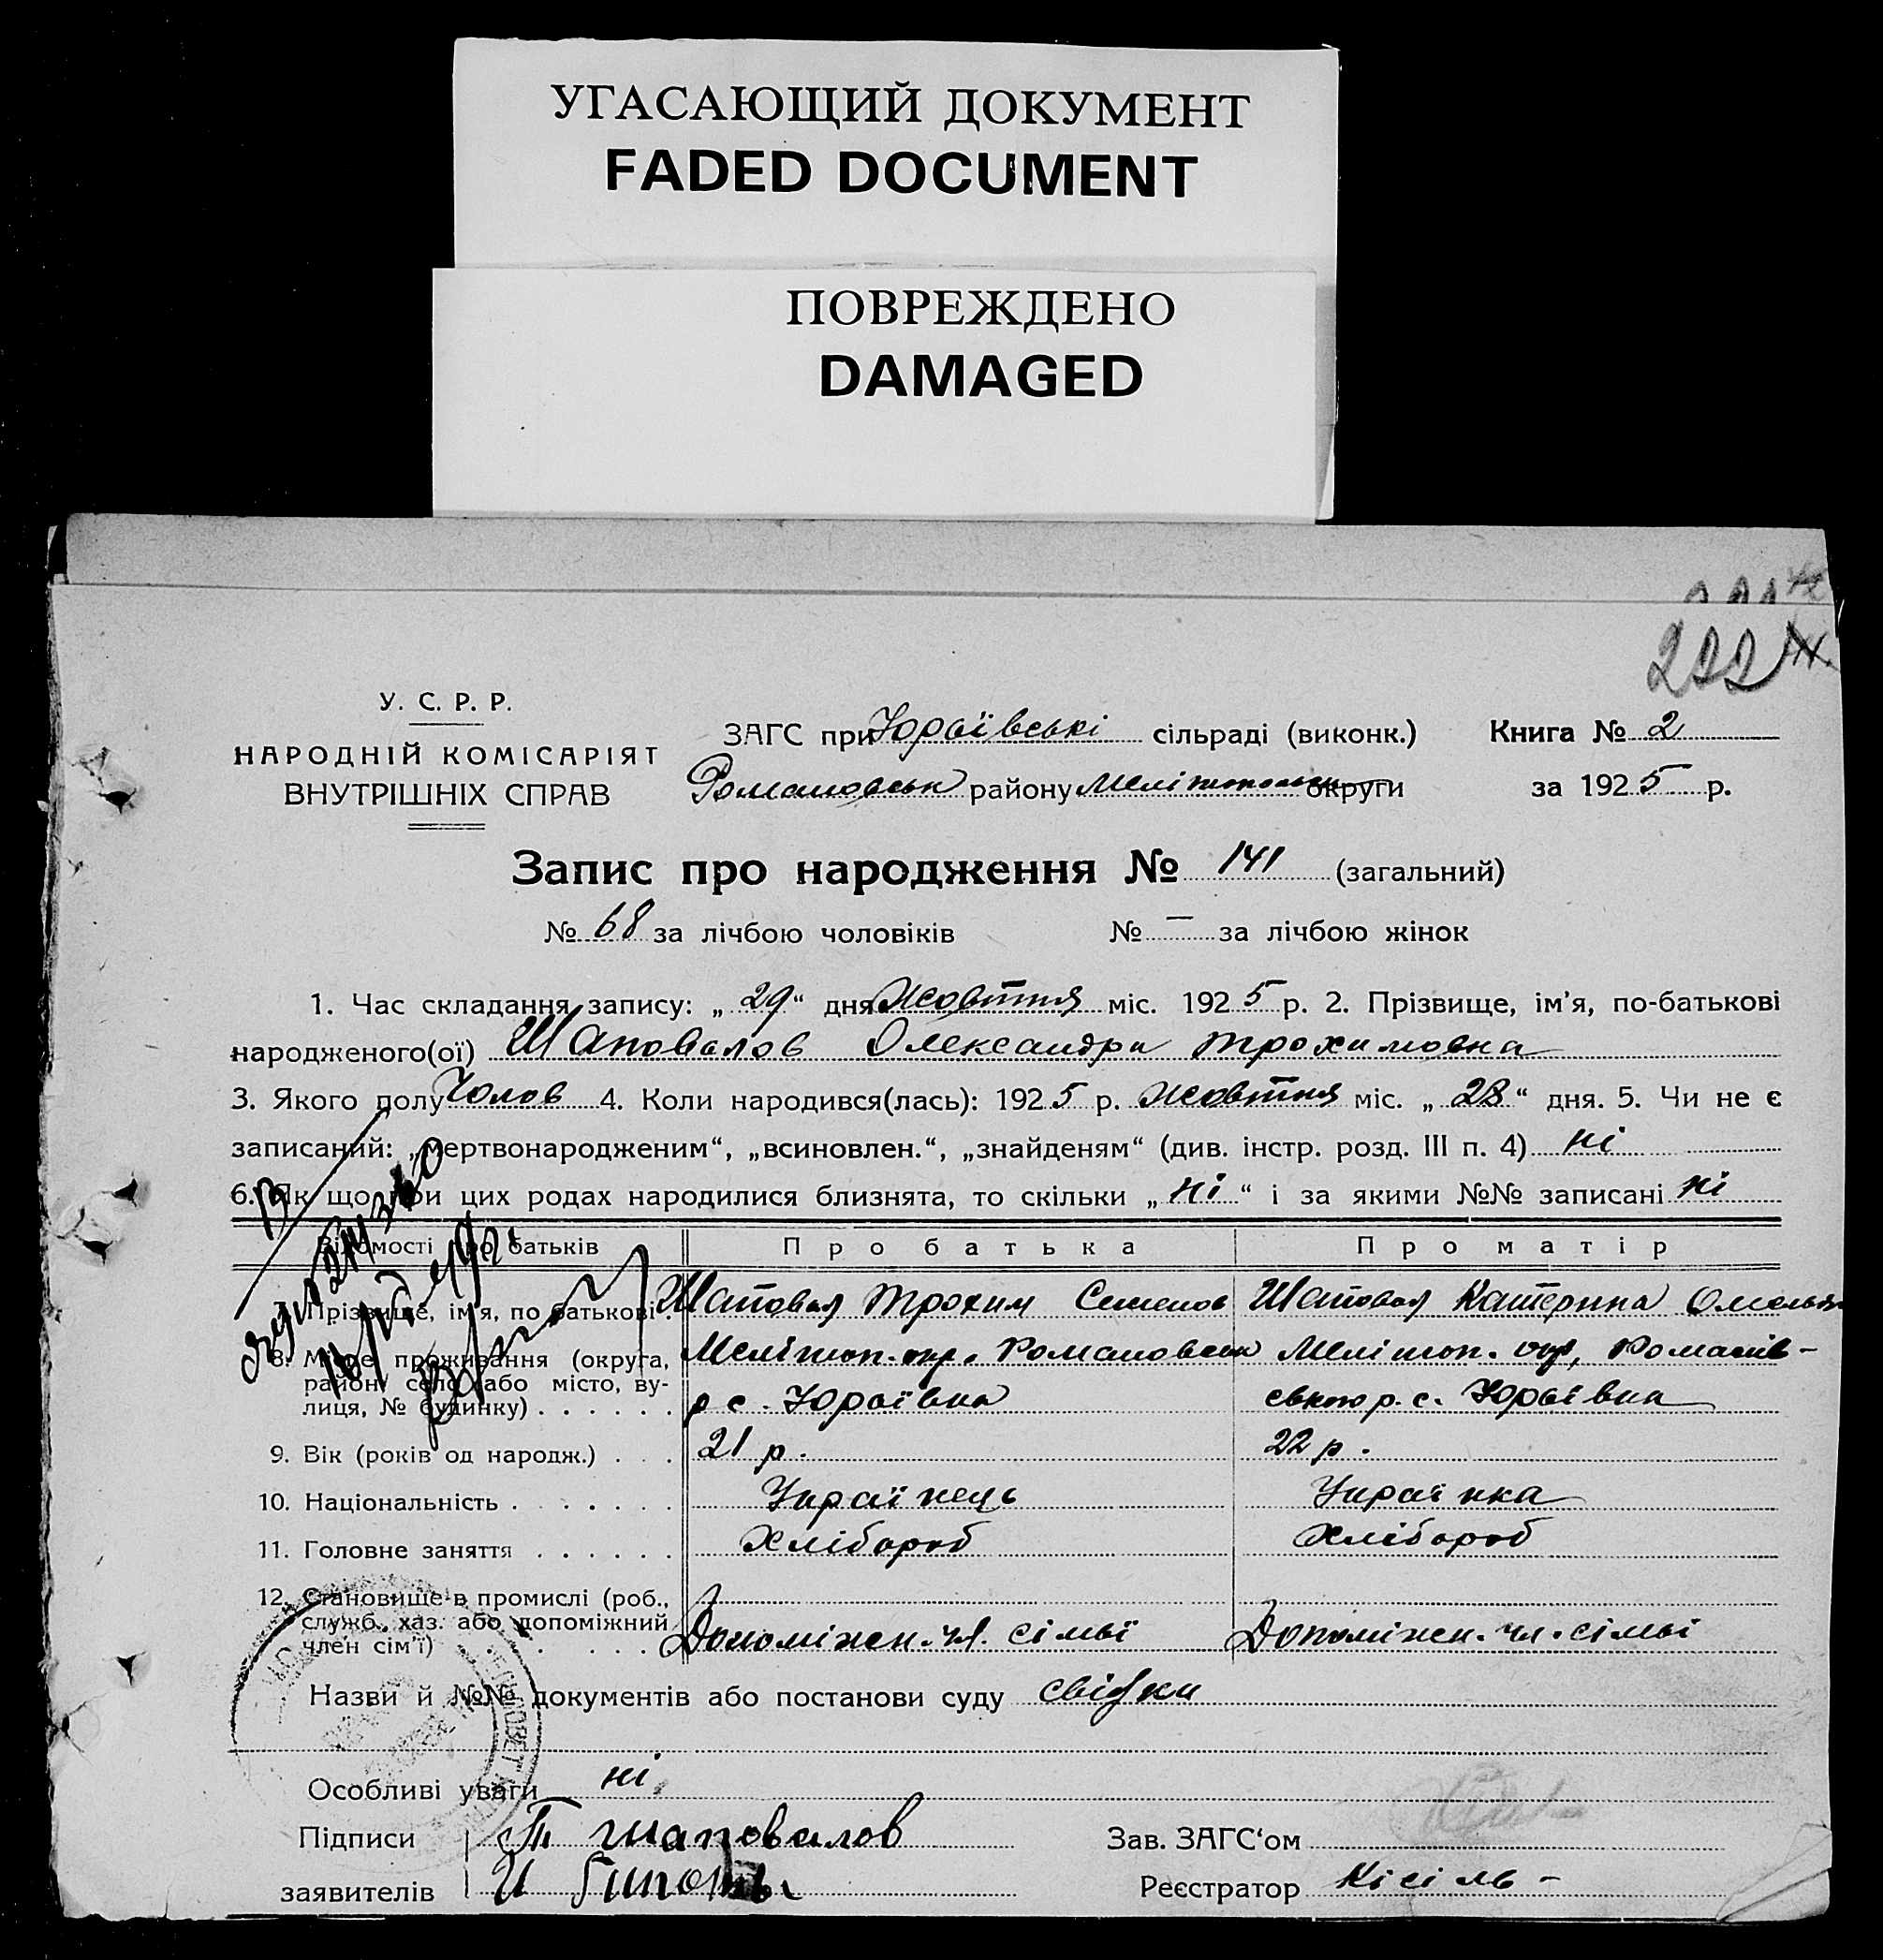 УГАСАЮЩИЙ ДОКУМЕНТ
FADED DOCUMENT
ПОВРЕЖДЕНО
DAMAGED
222
У. С. Р. Р.
НАРОДНІЙ КОМІСАРІЯТ
ВНУТРІШНІХ СПРАВ
ЗАГС при Юріївські сільраді (виконк.) Книга № 2
Романовськ району Мелітопольськ округи за 1925 р.
Запис про народження № 141 (загальний)
№ 68 за лічбою чоловіків № — за лічбою жінок
1. Час складання запису: „29“ дня Жовтня міс. 1925 р. 2. Прізвище, ім’я, по-батькові
народженого(ої) Шаповалов Олександра Трохимовна
3. Якого полу Чолов 4. Коли народився(лась): 1925 р. Жовтня міс. „28“ дня. 5. Чи не є
записаний: „мертвонародженим“, „всиновлен.“, „знайденям“ (див. інстр. розд. III п. 4) ні
6. Як що при цих родах народилися близнята, то скільки „ні“ і за якими №№ записані ні
Відомості про батьків Про батька Про матір
7. Прізвище, ім’я, по батькові. Шаповал Трохим Семенов Шаповал Катерина Омельян
8. Місце проживання (округа, Меліттоп. окр. Романовськ Мелітоп. окр, Романів-
район, село або місто, ву- р с. Юріївка ського р. с. Юріївка
лиця, № будинку) . . . . . .
9. Вік (років од народж.) . . . 21 р. 22 р.
10. Національність . . . . . . . Українець Українка
11. Головне заняття . . . . . . Хлібороб Хлібороб
12. Становище в промислі (роб.,
служб., хаз. або допоміжний
член сім’ї) . . . . . . . Допоміжн. чл. сімьї Допоміжн. чл. сімьї
Назви й №№ документів або постанови суду свідки
Особливі уваги ні
Підписи Т шаповалов Зав. ЗАГС‘ом
заявителів И Реєстратор Кісіль -